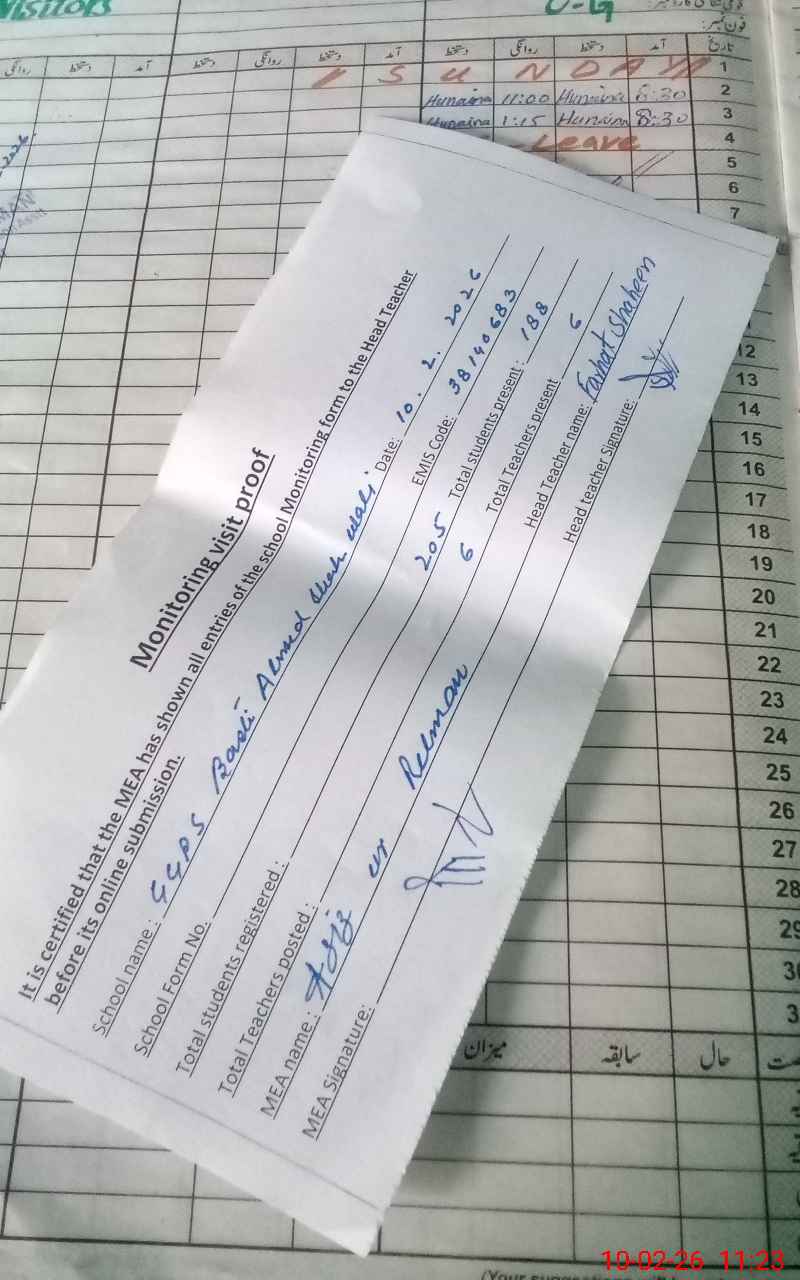 Visitors
U-G
فون نمبر:
تاریخ آمد دستخط روانگی دستخط آمد دستخط روانگی دستخط آمد دستخط روانگی
1 SUNDAY
2 8:30 Hunaina 11:00 Hunaina
3 8:30 Hunaina 1:15 Hunaina
4 Leave
5
6
7
Monitoring visit proof
It is certified that the MEA has shown all entries of the school Monitoring form to the Head Teacher
before its online submission.
School name: GGPS Basti Ahmed Shah Wali Date: 10.2.2026
School Form No. EMIS Code: 38140683
Total students registered: 205 Total students present: 188
Total Teachers posted: 6 Total Teachers present 6
MEA name: Aziz ur Rehman Head Teacher name: Farhat Shaheen
MEA Signature: Head teacher Signature:
12
13
14
15
16
17
18
19
20
21
22
23
24
25
26
27
28
حال سابقہ میزان
10-02-26 11:23